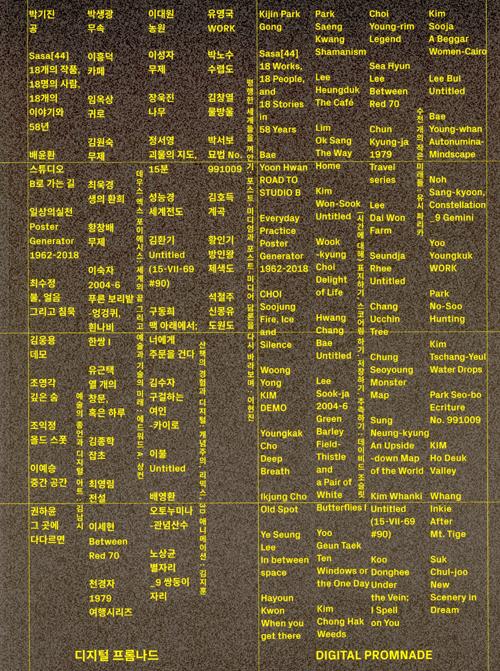 박기진
공

Sasa[44]
18개의 작품,
18명의 사람,
18개의
이야기와
58년

배윤환
스튜디오
B로 가는 길

일상의실천
Poster
Generator
1962-2018

최수정
불, 얼음
그리고 침묵

김웅용
데모

조영각
깊은 숨

조익정
올드 스폿

이예승
중간 공간

권하윤
그 곳에
다다르면

박생광
무속

이흥덕
카페

임옥상
귀로

김원숙
무제

최욱경
생의 환희

황창배
무제

이숙자
2004-6
푸른 보리밭
-엉겅퀴,
흰나비
한쌍 I

유근택
열 개의
창문,
혹은 하루

김종학
잡초

최영림
전설

이세현
Between
Red 70

천경자
1979
여행시리즈

이대원
농원

이성자
무제

장욱진
나무

정서영
괴물의 지도,
15분

성능경
세계전도

김환기
Untitled
(15-VII-69
#90)

구동희
맥 아래에서;
너에게
주문을 건다

김수자
구걸하는
여인
-카이로

이불
Untitled

배영환
오토누미나
-관념산수

노상균
별자리
_9 쌍둥이
자리

유영국
WORK

박노수
수렵도

김창열
물방울

박서보
묘법 No.
991009

김호득
계곡

황인기
방인왕
제색도

석철주
신몽유
도원도

Kijin Park
Gong

Sasa[44]
18 Works,
18 People,
and
18 Stories
in
58 Years

Bae
Yoon Hwan
ROAD TO
STUDIO B

Everyday
Practice
Poster
Generator
1962-2018

CHOI
Soojung
Fire, Ice
and
Silence

Woong
Yong
KIM
DEMO

Youngkak
Cho
Deep
Breath

Ikjung Cho
Old Spot

Ye Seung
Lee
In between
space

Hayoun
Kwon
When you
get there

Park
Saeng
Kwang
Shamanism

Lee
Heungduk
The Café

Lim
Ok Sang
The Way
Home

Kim
Won-Sook
Untitled

Wook
-kyung
Choi
Delight
of Life

Hwang
Chang
Bae
Untitled

Lee
Sook-ja
2004-6
Green
Barley
Field-
Thistle
and
a Pair of
White
Butterflies I

Yoo
Geun Taek
Ten
Windows or
the One Day

Kim
Chong Hak
Weeds

Choi
Young-rim
Legend

Sea Hyun
Lee
Between
Red 70

Chun
Kyung-ja
1979
Travel
series

Lee
Dai Won
Farm

Seundja
Rhee
Untitled

Chang
Ucchin
Tree

Chung
Seoyoung
Monster
Map

Sung
Neung-kyung
An Upside
-down Map
of the World

Kim Whanki
Untitled
(15-VII-69
#90)

Koo
Donghee
Under
the Vein;
I Spell
on You

Kim
Sooja
A Beggar
Women-Cairo

Lee Bul
Untitled

Bae
Young-whan
Autonumina-
Mindscape

Noh
Sang-kyoon,
Constellation
_9 Gemini

Yoo
Youngkuk
WORK

Park
No-Soo
Hunting

Kim
Tschang-Yeul
Water Drops

Park Seo-bo
Ecriture
No. 991009

KIM
Ho Deuk
Valley

Whang
Inkie
After
Mt. Tige

Suk
Chul-joo
New
Scenery in
Dream

디지털 프롬나드
DIGITAL PROMNADE